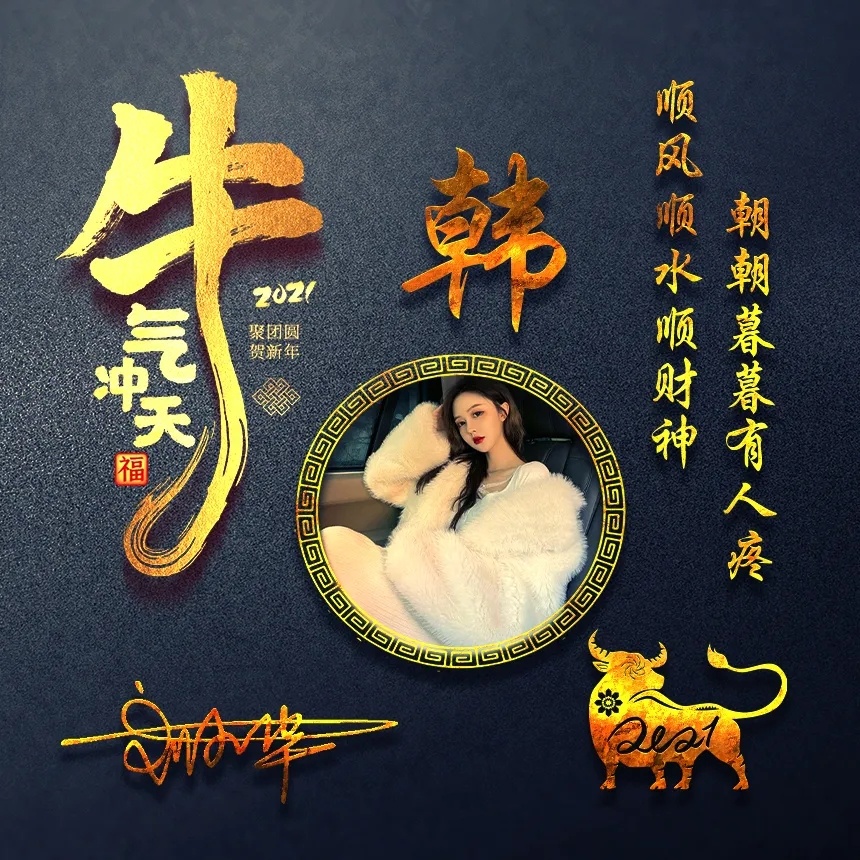 牛
气
冲
天
福
2021
聚团圆
贺新年
韩
顺风顺水顺财神
朝朝暮暮有人疼
2021